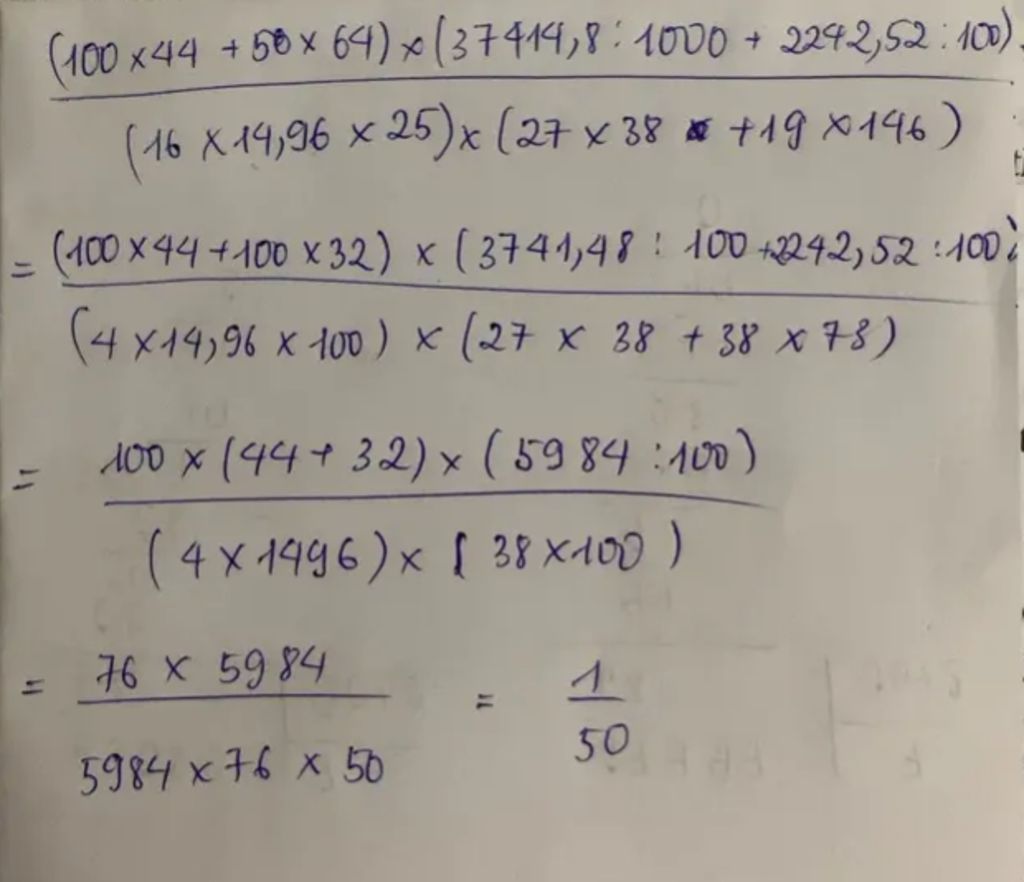 (100 × 44 + 50 × 64) × (37414,8 : 1000 + 2242,52 : 100)
(16 × 14,96 × 25) × (27 × 38 + 19 × 146)
= (100 × 44 + 100 × 32) × (3741,48 : 100 + 2242,52 : 100)
(4 × 14,96 × 100) × (27 × 38 + 38 × 73)
= 100 × (44 + 32) × (5984 : 100)
(4 × 1496) × (38 × 100)
= 76 × 5984 = 1
5984 × 76 × 50 50